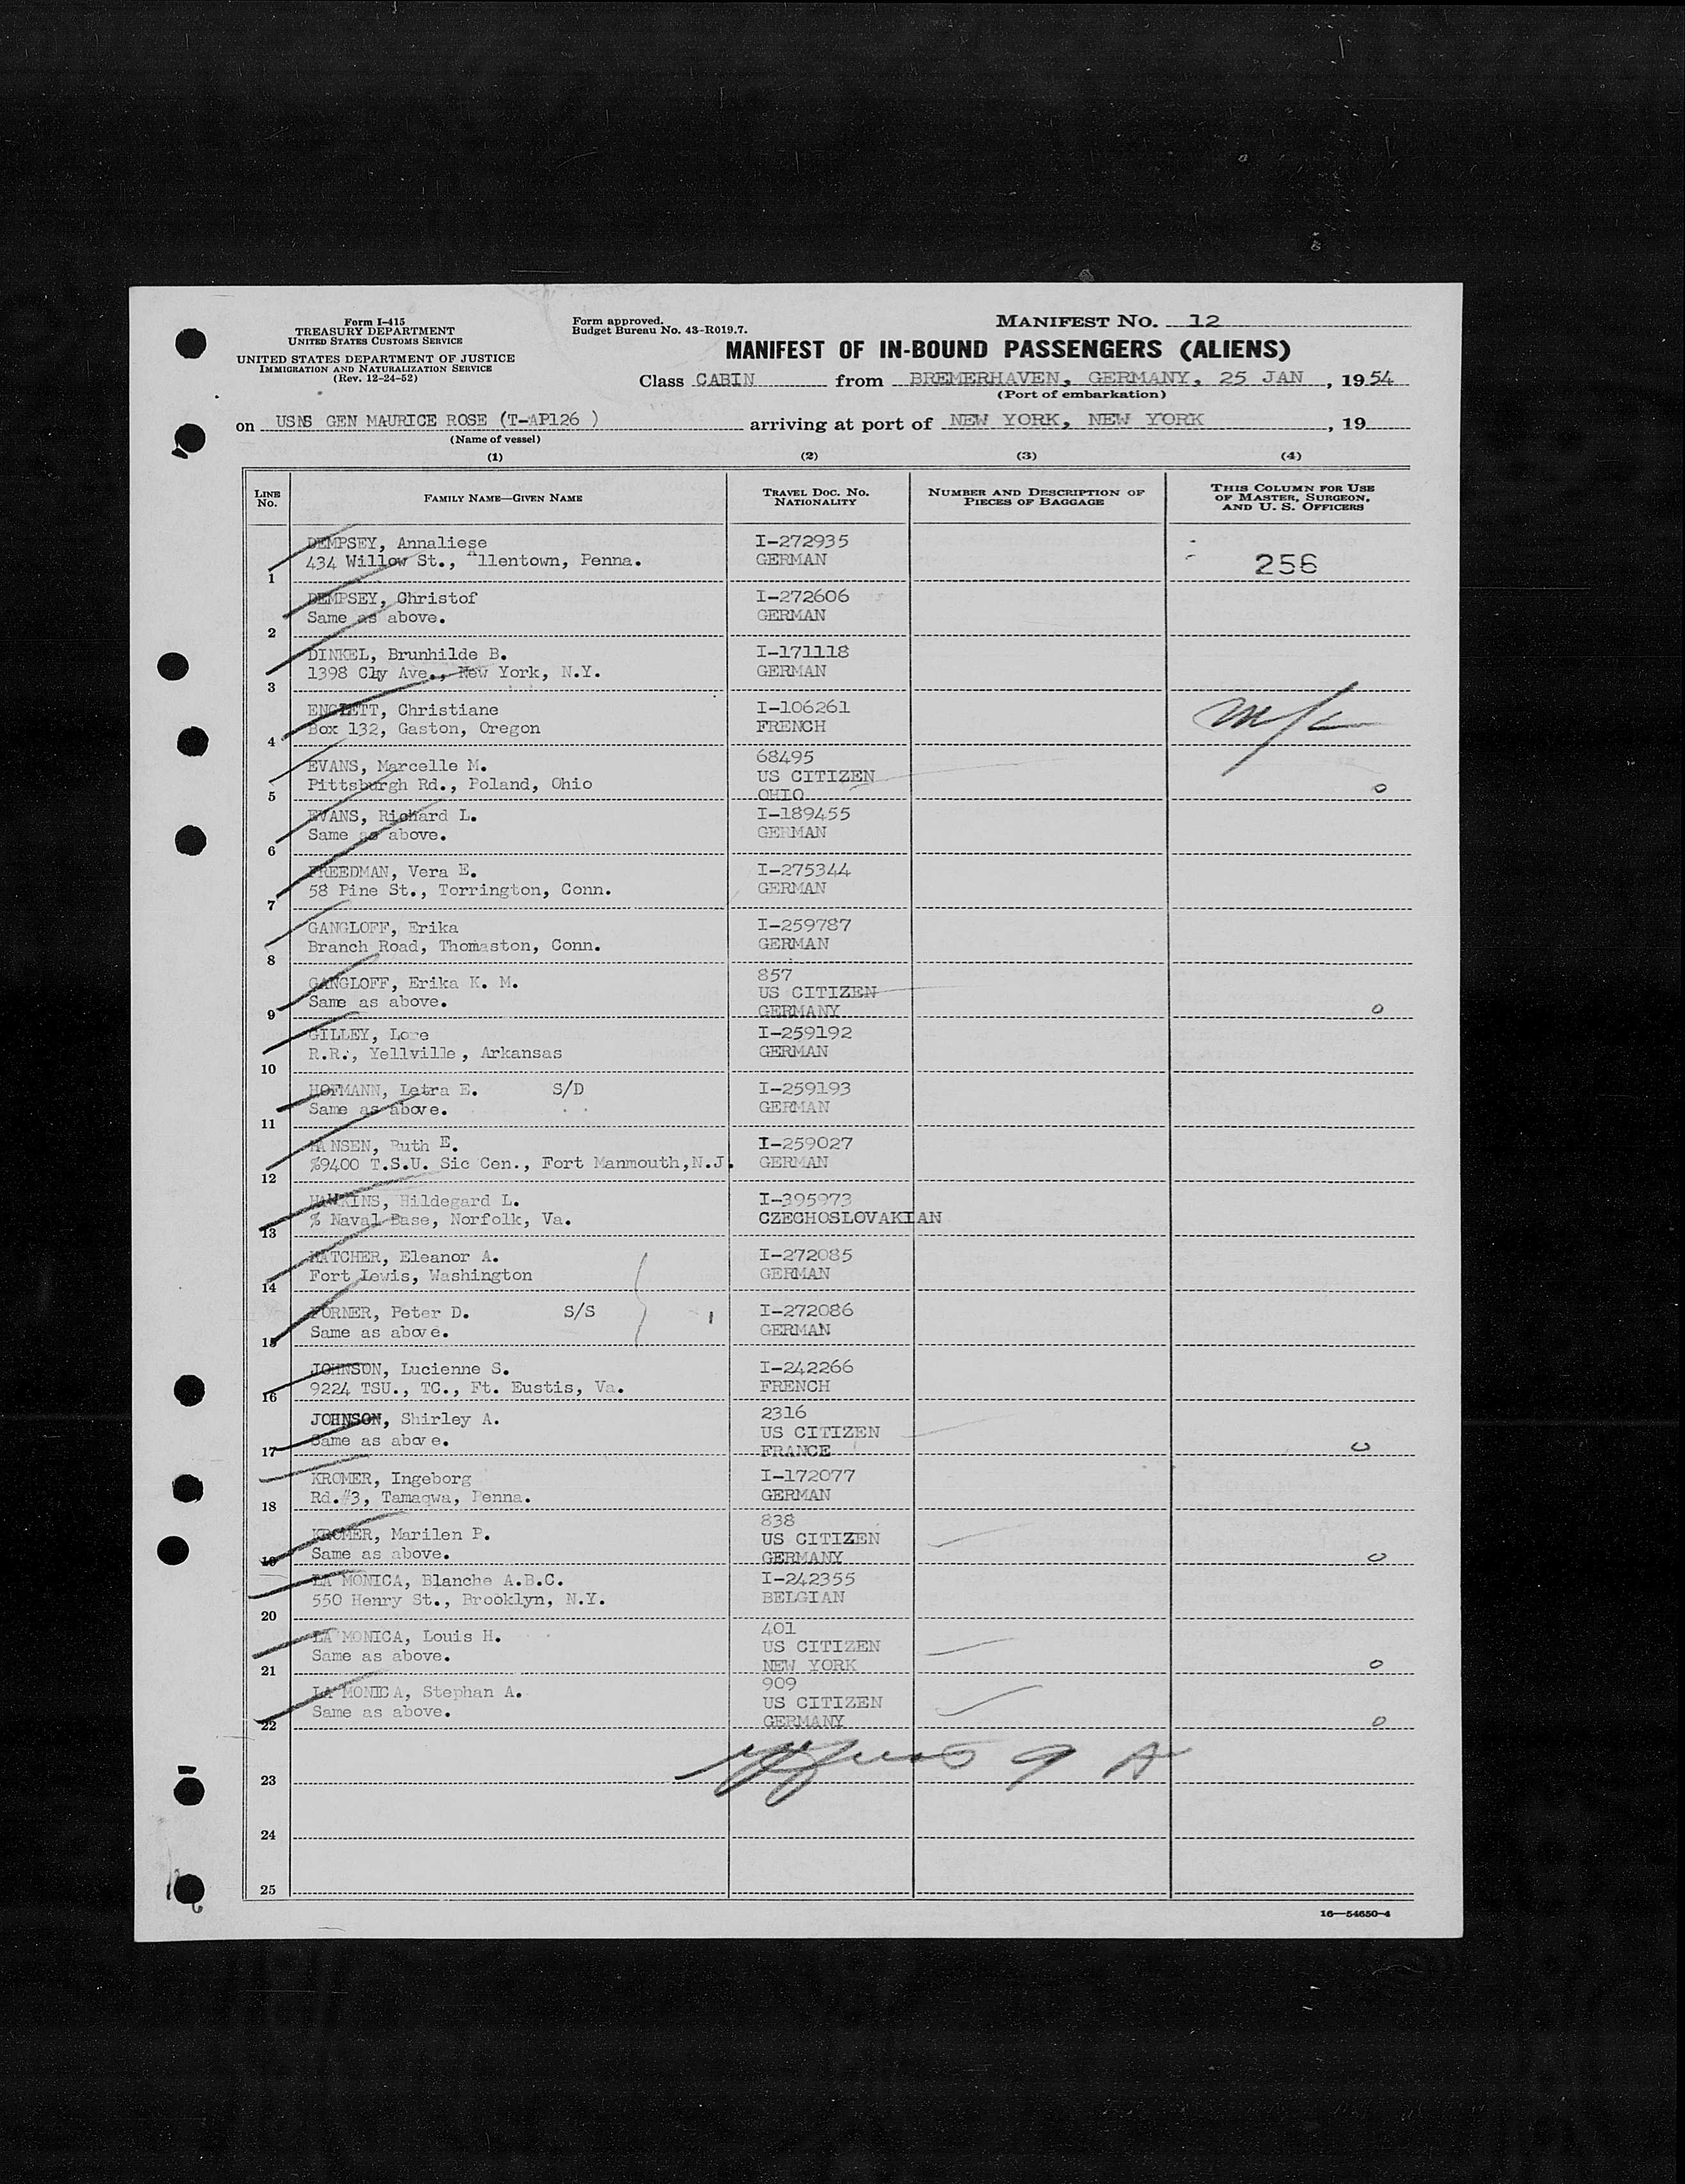 Form I-415
TREASURY DEPARTMENT
UNITED STATES CUSTOMS SERVICE
UNITED STATES DEPARTMENT OF JUSTICE
IMMIGRATION AND NATURALIZATION SERVICE
(Rev. 12-24-52)
Form approved.
Budget Bureau No. 43-R019.7.
MANIFEST NO. 12
MANIFEST OF IN-BOUND PASSENGERS (ALIENS)
Class CABIN from BREMERHAVEN, GERMANY, 25 JAN, 1954
(Port of embarkation)
on USNS GEN MAURICE ROSE (T-AP126 ) arriving at port of NEW YORK, NEW YORK, 19
(Name of vessel)
(1) (2) (3) (4)
LINE NO. FAMILY NAME—GIVEN NAME TRAVEL DOC. NO. NATIONALITY NUMBER AND DESCRIPTION OF PIECES OF BAGGAGE THIS COLUMN FOR USE OF MASTER, SURGEON, AND U. S. OFFICERS
DEMPSEY, Annaliese I-272935
434 Willow St., Allentown, Penna. GERMAN 256
1
DEMPSEY, Christof I-272606
Same as above. GERMAN
2
DINKEL, Brunhilde B. I-171118
1398 Cly Ave., New York, N.Y. GERMAN
3
ENGLETT, Christiane I-106261
Box 132, Gaston, Oregon FRENCH
4
EVANS, Marcelle M. 68495
Pittsburgh Rd., Poland, Ohio US CITIZEN
5 OHIO
EVANS, Richard L. I-189455
Same as above. GERMAN
6
FREEDMAN, Vera E. I-275344
58 Pine St., Torrington, Conn. GERMAN
7
GANGLOFF, Erika I-259787
Branch Road, Thomaston, Conn. GERMAN
8
GANGLOFF, Erika K. M. 857
Same as above. US CITIZEN
9 GERMANY
GILLEY, Lore I-259192
R.R., Yellville, Arkansas GERMAN
10
HOFMANN, Letra E. S/D I-259193
Same as above. GERMAN
11
HANSEN, Ruth E. I-259027
%9400 T.S.U. Sic Cen., Fort Manmouth,N.J. GERMAN
12
HAWKINS, Hildegard L. I-395973
% Naval Base, Norfolk, Va. CZECHOSLOVAKIAN
13
HATCHER, Eleanor A. I-272085
Fort Lewis, Washington GERMAN
14
FORNER, Peter D. S/S I-272086
Same as above. GERMAN
15
JOHNSON, Lucienne S. I-242266
9224 TSU., TC., Ft. Eustis, Va. FRENCH
16
JOHNSON, Shirley A. 2316
Same as above. US CITIZEN
17 FRANCE
KROMER, Ingeborg I-172077
Rd.#3, Tamaqwa, Penna. GERMAN
18
KROMER, Marilen P. 838
Same as above. US CITIZEN
19 GERMANY
LA MONICA, Blanche A.B.C. I-242355
550 Henry St., Brooklyn, N.Y. BELGIAN
20
LA MONICA, Louis H. 401
Same as above. US CITIZEN
21 NEW YORK
LA MONICA, Stephan A. 909
Same as above. US CITIZEN
22 GERMANY
23
24
25
16—54650-4